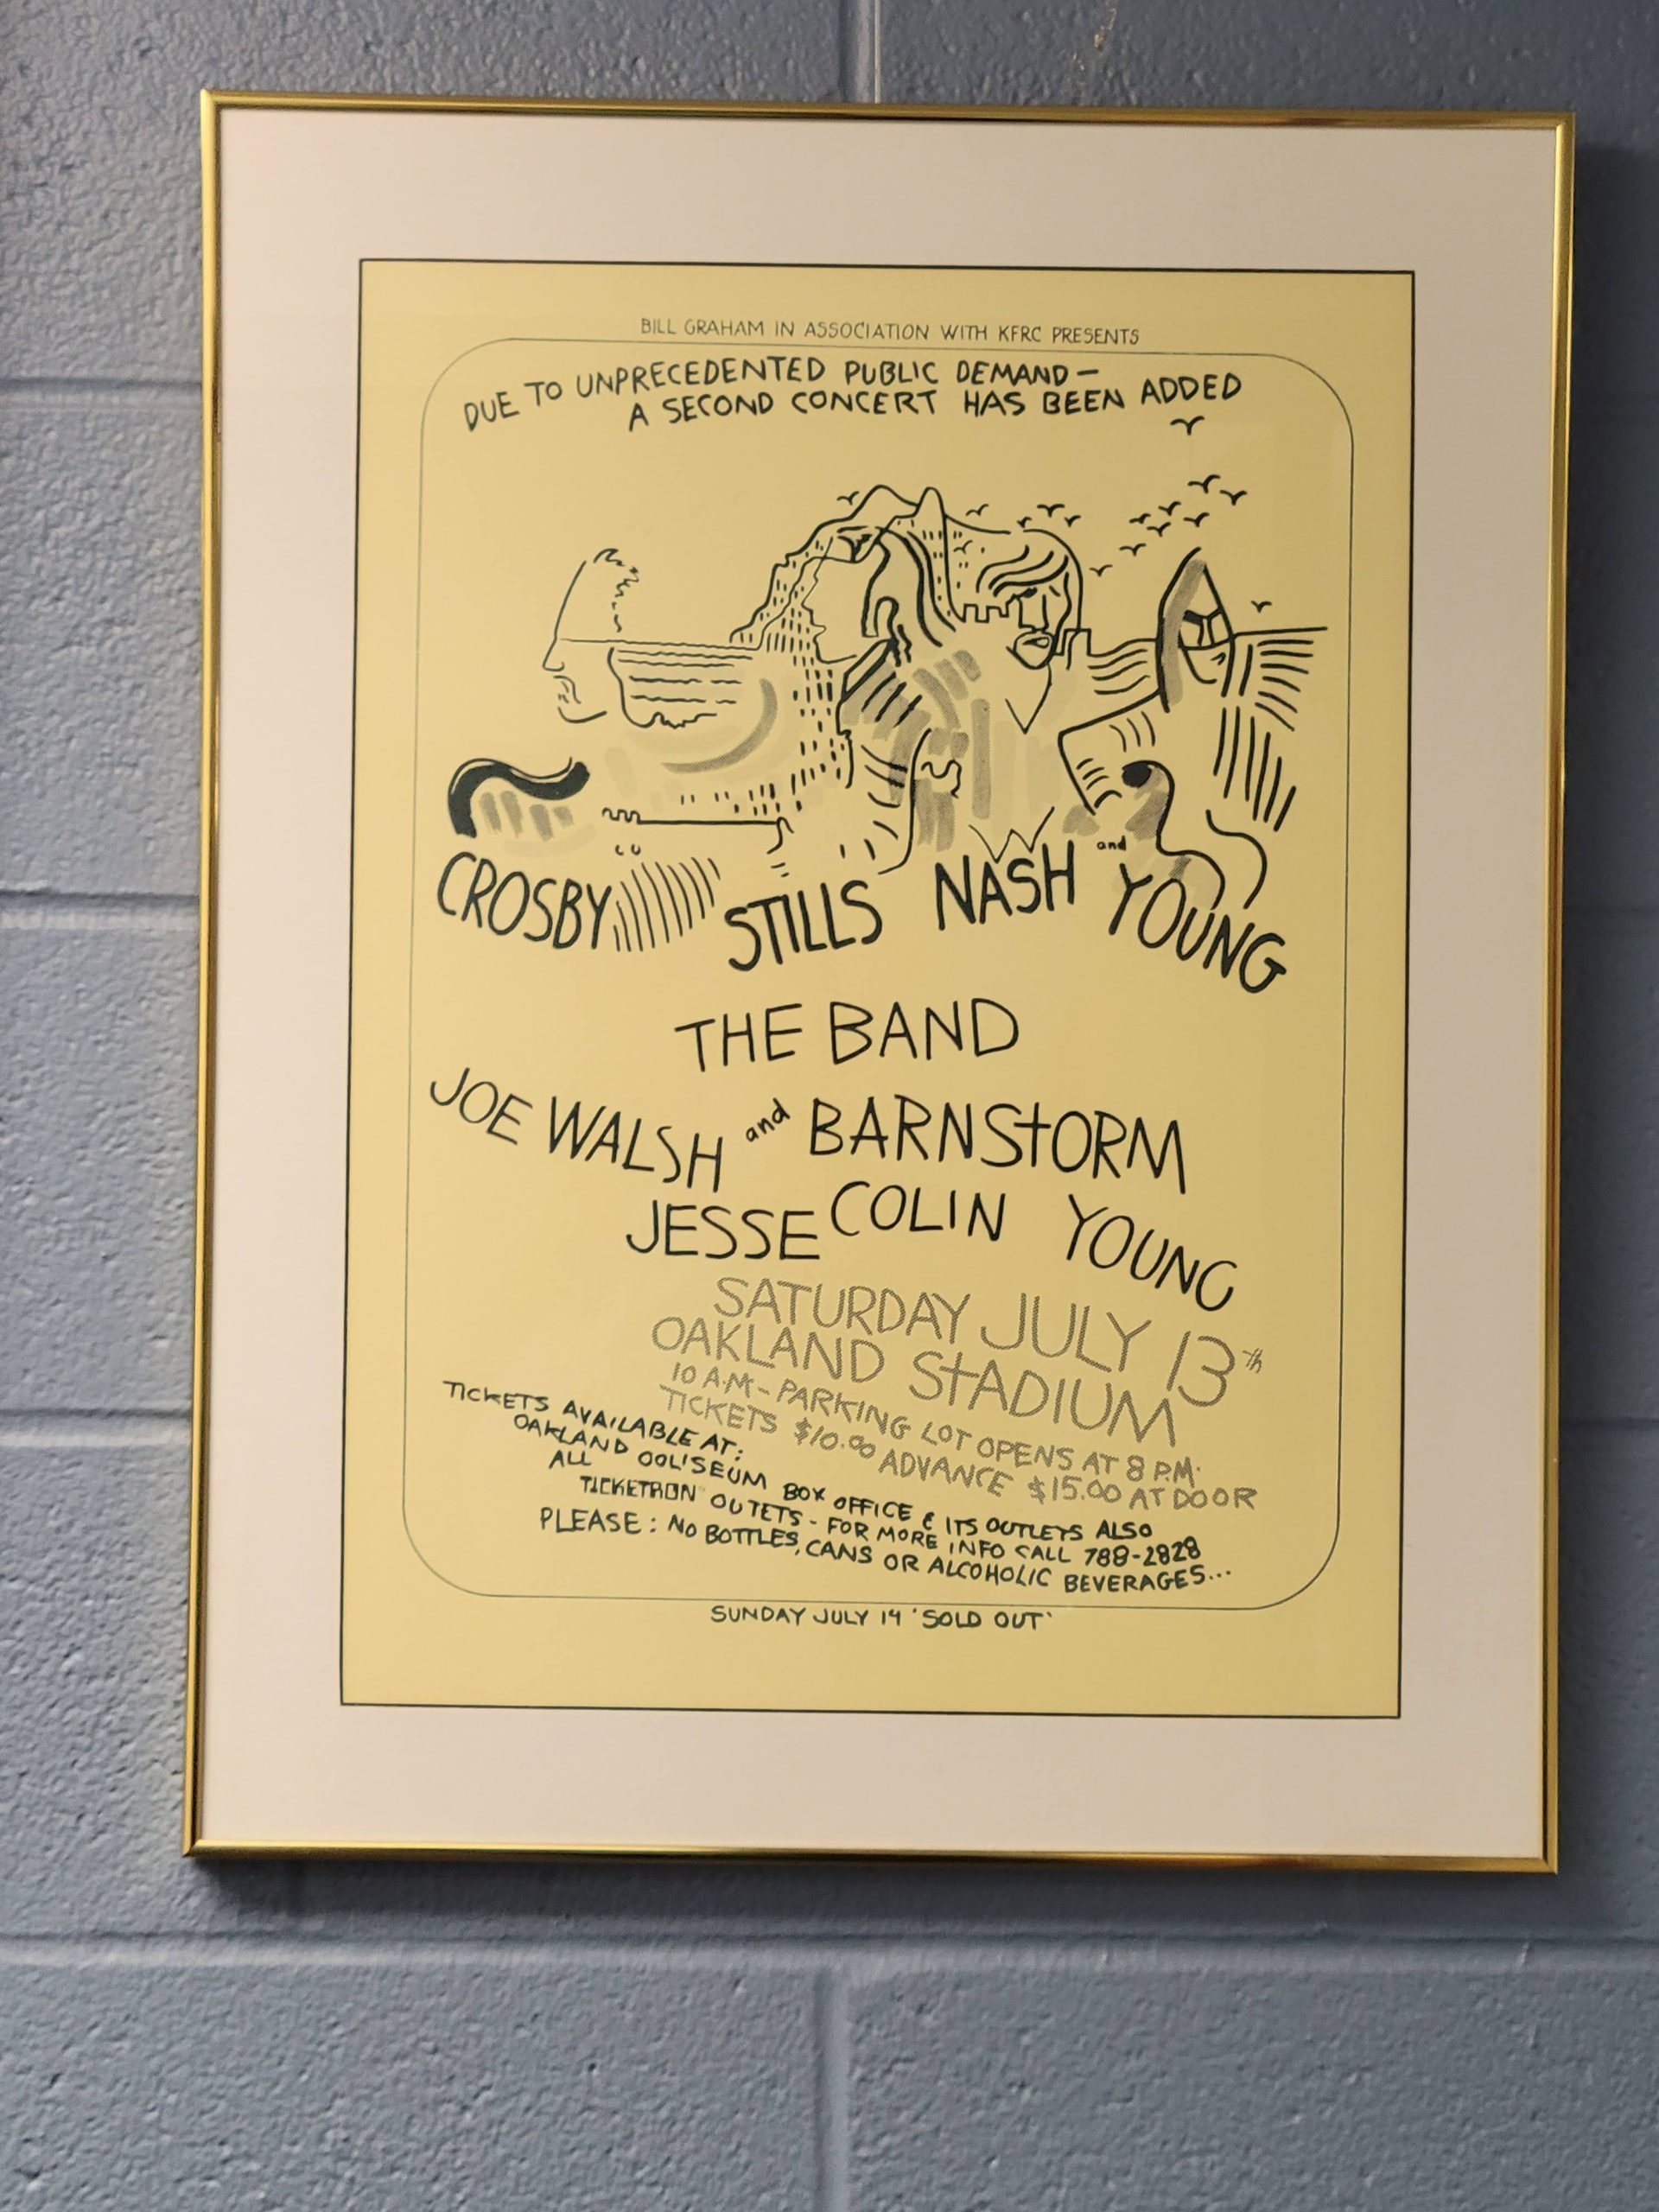 BILL GRAHAM IN ASSOCIATION WITH KFRC PRESENTS
DUE TO UNPRECEDENTED PUBLIC DEMAND—
A SECOND CONCERT HAS BEEN ADDED
CROSBY STILLS NASH and YOUNG
THE BAND
JOE WALSH and BARNSTORM
JESSE COLIN YOUNG
SATURDAY JULY 13th
OAKLAND STADIUM
10 A.M.- PARKING LOT OPENS AT 8 P.M.
TICKETS $10.00 ADVANCE $15.00 AT DOOR
TICKETS AVAILABLE AT:
OAKLAND COLISEUM BOX OFFICE & ITS OUTLETS ALSO
ALL TICKETRON OUTETS - FOR MORE INFO CALL 788-2828
PLEASE: NO BOTTLES, CANS OR ALCOHOLIC BEVERAGES...
SUNDAY JULY 14 'SOLD OUT'